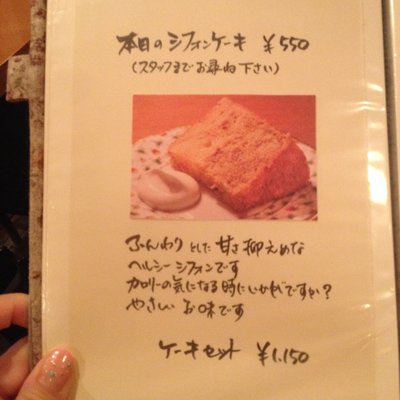 本日のシフォンケーキ ¥550
(スタッフまでお尋ね下さい)
ふんわりとした甘さ抑えめな
ヘルシーシフォンです
カロリーの気になる時にいかがですか?
やさしいお味です
ケーキセット ¥1,150